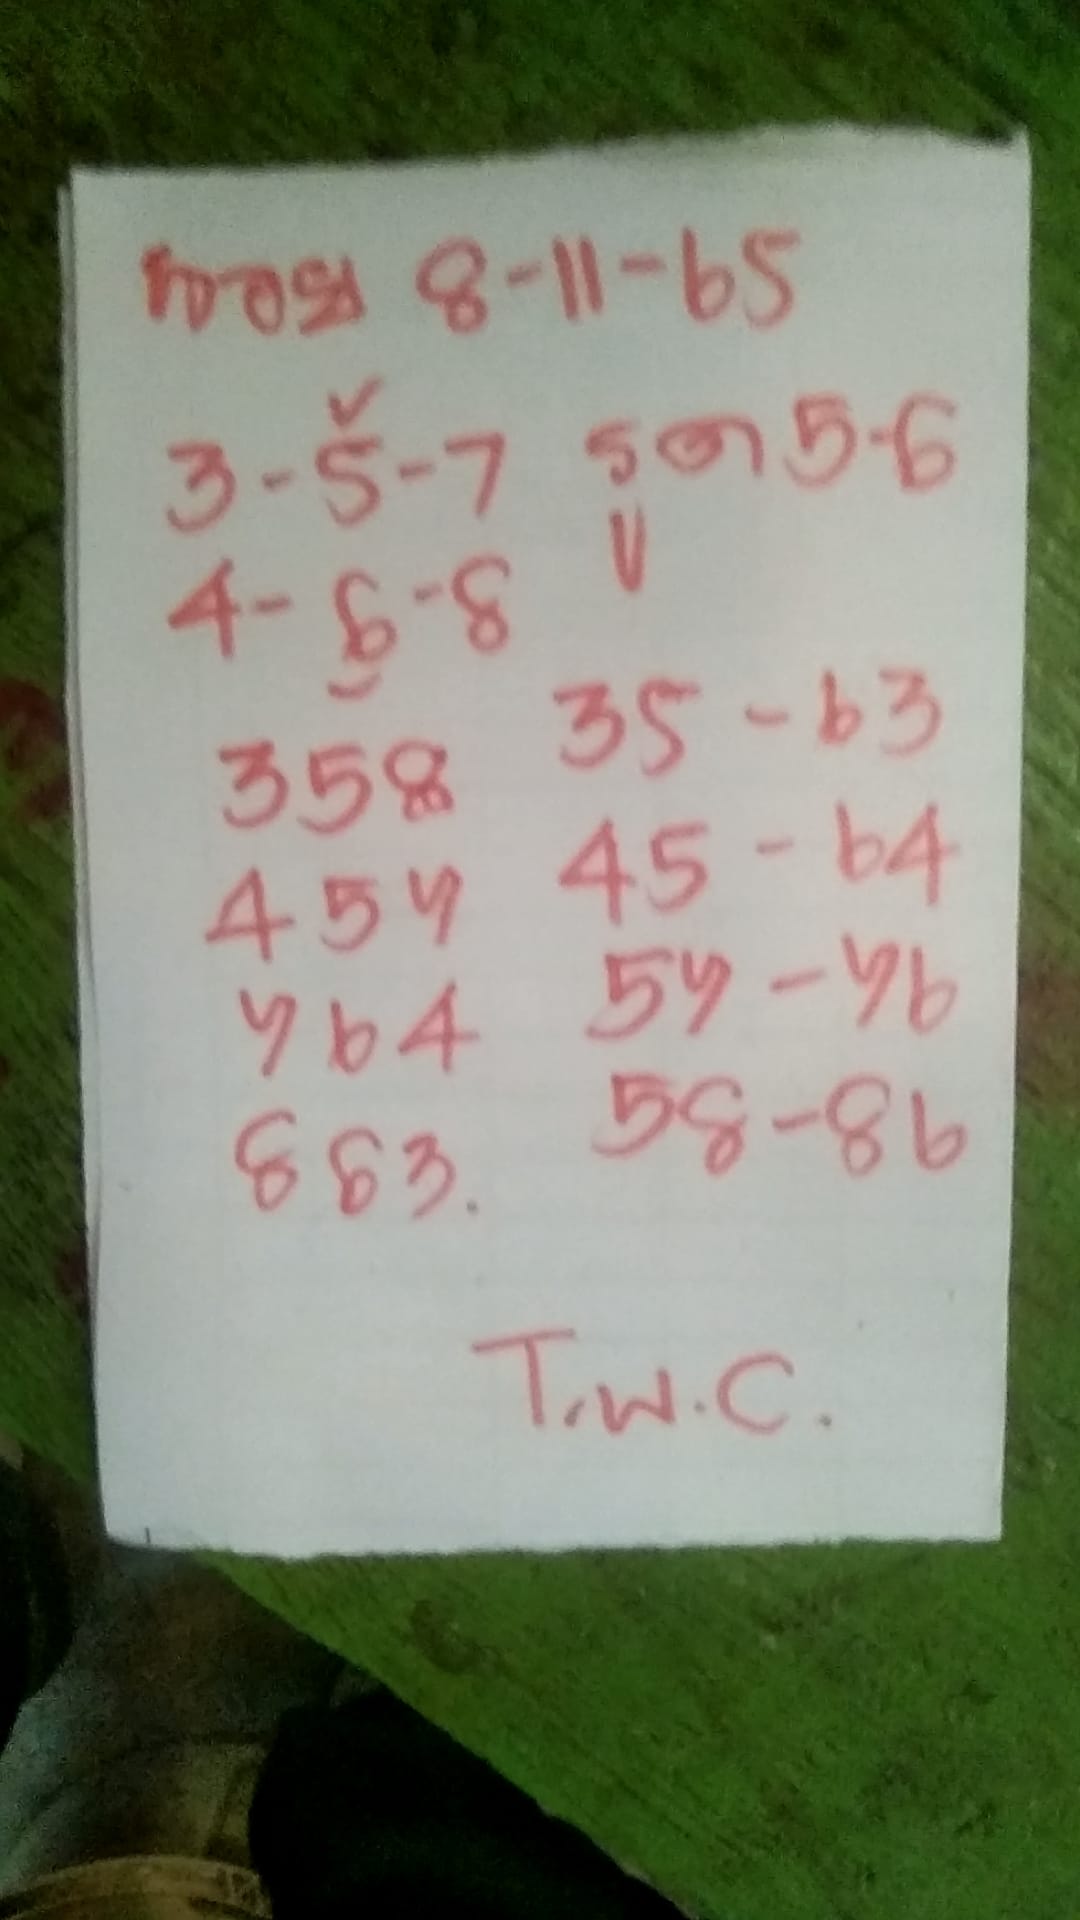 ฮานอย 8-11-65
3-5-7 รูด 5-6
4-6-8
358 35-63
457 45-64
764 57-76
863. 58-86
T.W.C.